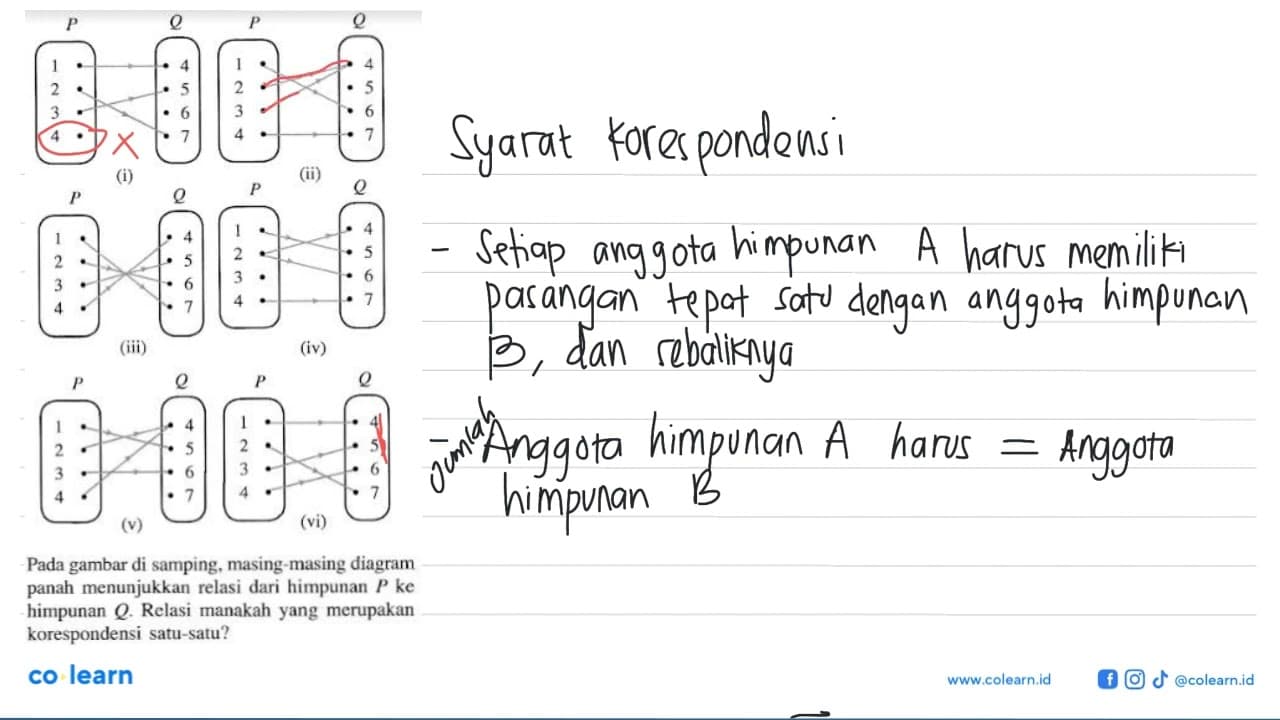 P Q P Q
1 4 1 4
2 5 2 5
3 6 3 6
4 X 7 4 7
(i) (ii)
P Q P Q
1 4 1 4
2 5 2 5
3 6 3 6
4 7 4 7
(iii) (iv)
P Q P Q
1 4 1 4
2 5 2 5
3 6 3 6
4 7 4 7
(v) (vi)
Pada gambar di samping, masing-masing diagram
panah menunjukkan relasi dari himpunan P ke
himpunan Q. Relasi manakah yang merupakan
korespondensi satu-satu?
Syarat korespondensi
- Setiap anggota himpunan A harus memiliki
pasangan tepat satu dengan anggota himpunan
B, dan sebaliknya
- Jumlah Anggota himpunan A harus = Anggota
himpunan B
co learn
www.colearn.id @colearn.id